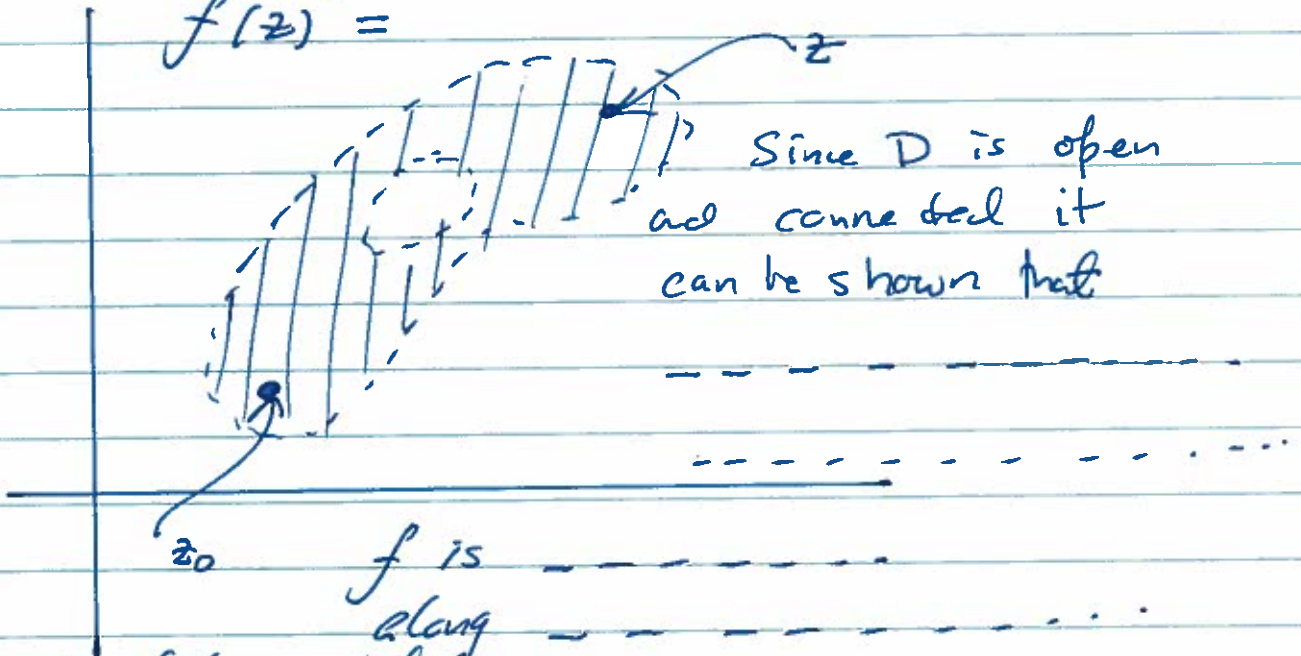 f(z) =
z
Since D is open
ad connected it
can be shown that
z₀
f is
along